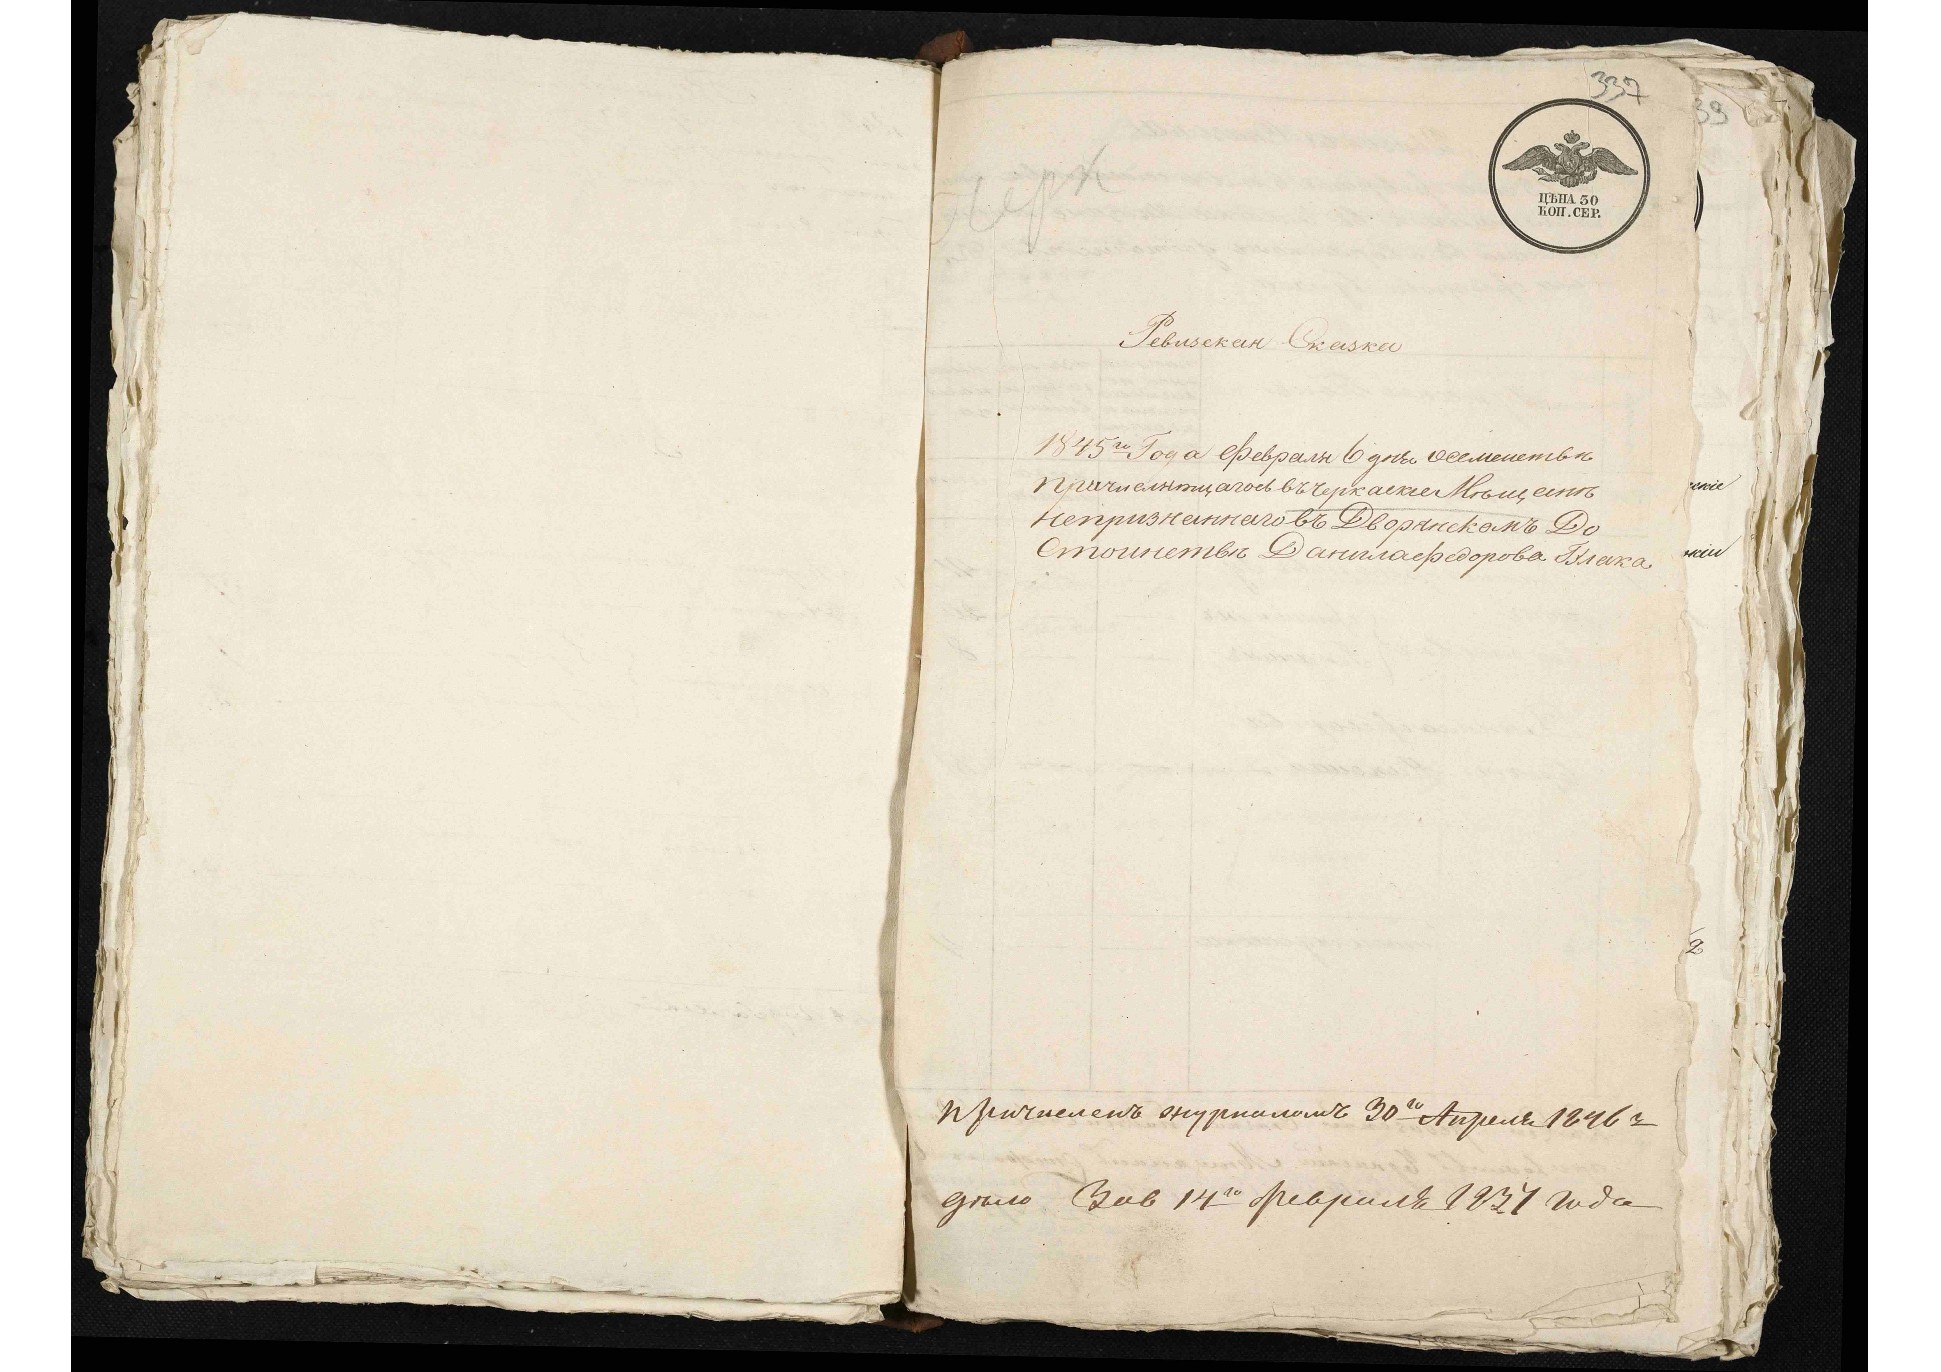 337
39
черк
ЦѢНА 30
КОП. СЕР.
Ревизская Сказка
1845го Года февраля 6 дня о семействѣ
причисляющагося въ Черкаские Мѣщанѣ
непризнаннаго въ Дворянскомъ До
стоинствѣ Данила федорова Блака
причисленъ журналомъ 30го Апреля 1846 г
дѣло 14го февраля года